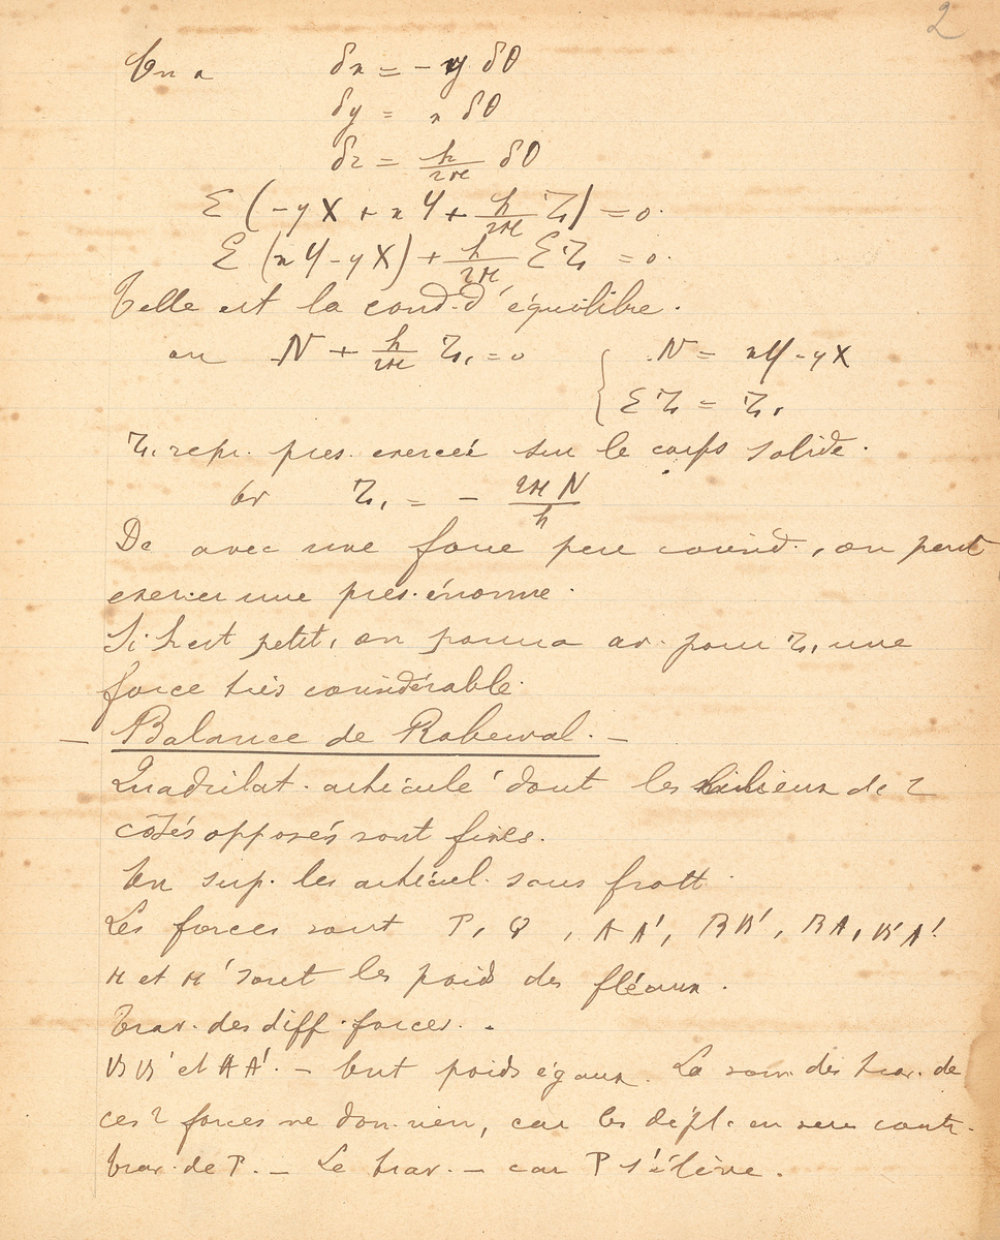 2
On a δx = - y δθ
δy = x δθ
δz = h/2π δθ
Σ (-yX + xY + h/2π Z) = 0.
Σ (xY - yX) + h/2π ΣZ = 0.
Telle est la cond. d'équilibre.
ou N + h/2π Z₁ = 0 { N = xY - yX
ΣZ = Z₁
Z₁ repr. pres. exercée sur le corps solide.
or Z₁ = - 2πN/h
Dc avec une force peu consid., on peut
exercer une pres. énorme.
Si h est petit, on pourra av. pour Z₁ une
force très considérable.
- Balance de Roberval. -
Quadrilat. articulé dont les milieux de 2
côtés opposés sont fixes.
On sup. les articul. sans frott.
Les forces sont P, Q, AA', BB', BA, B'A'.
π et π' sont les poids des fléaux.
Trav. des diff. forces. -
BB' et AA'. - Ont poids égaux. La som. des trav. de
ces 2 forces ne don. rien, car les dépl. en sens contr.
Trav. de P. - Le trav. - car P s'élève.